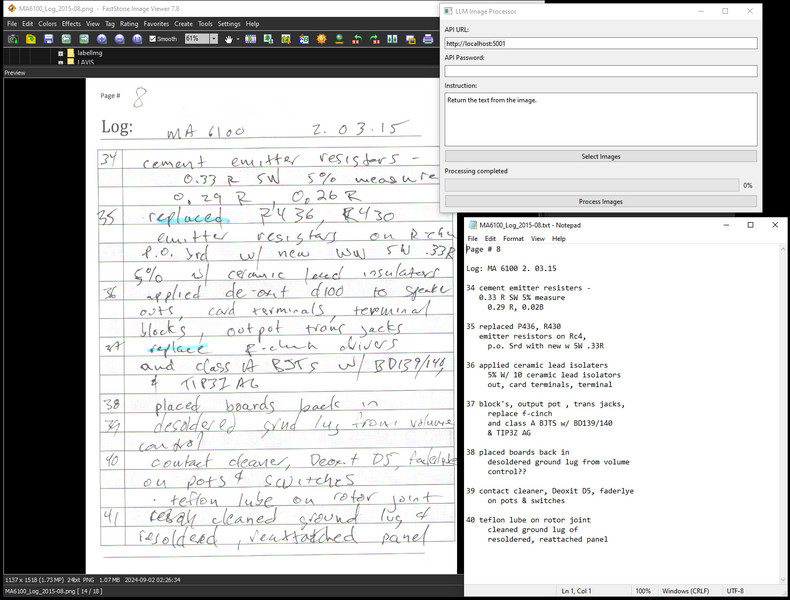 MA6100_Log_2015-08.png - FastStone Image Viewer 7.8
File Edit Colors Effects View Tag Rating Favorites Create Tools Settings Help
Smooth 61%
labelImg
LAVIS
Preview
Page # 8
Log: MA 6100 2.03.15
34 cement emitter resistors -
0.33 R 5W 5% measure
0.29 R, 0.26 R
35 replaced R436, R430
emitter resistors on R-ch
P.O. brd w/ new WW 5W .33R
5% w/ ceramic lead insulators
36 applied de-oxit d100 to speake
outs, card terminals, terminal
blocks, output trans jacks
37 replace R-chan drivers
and class A BJTs w/ BD139/140
& TIP31AG
38 placed boards back in
39 desoldered grnd lug from volume
control
40 contact cleaner, Deoxit D5, faderlube
on pots & switches
· teflon lube on rotor joint
41 cleaned ground lug &
resoldered, reattached panel
1137 x 1518 (1.73 MP) 24bit PNG 1.07 MB 2024-09-02 02:26:34
MA6100_Log_2015-08.png [ 14 / 18 ]
LLM Image Processor
API URL:
http://localhost:5001
API Password:
Instruction:
Return the text from the image.
Select Images
Processing completed
0%
Process Images
MA6100_Log_2015-08.txt - Notepad
File Edit Format View Help
Page # 8
Log: MA 6100 2. 03.15
34 cement emitter resistors -
0.33 R SW 5% measure
0.29 R, 0.02B
35 replaced P436, R430
emitter resistors on Rc4,
p.o. Srd with new w 5W .33R
36 applied ceramic lead isolaters
5% W/ 10 ceramic lead isolators
out, card terminals, terminal
37 block's, output pot , trans jacks,
replace f-cinch
and class A BJTS w/ BD139/140
& TIP3Z AG
38 placed boards back in
desoldered ground lug from volume
control??
39 contact cleaner, Deoxit D5, faderlye
on pots & switches
40 teflon lube on rotor joint
cleaned ground lug of
resoldered, reattached panel
Ln 1, Col 1 100% Windows (CRLF) UTF-8